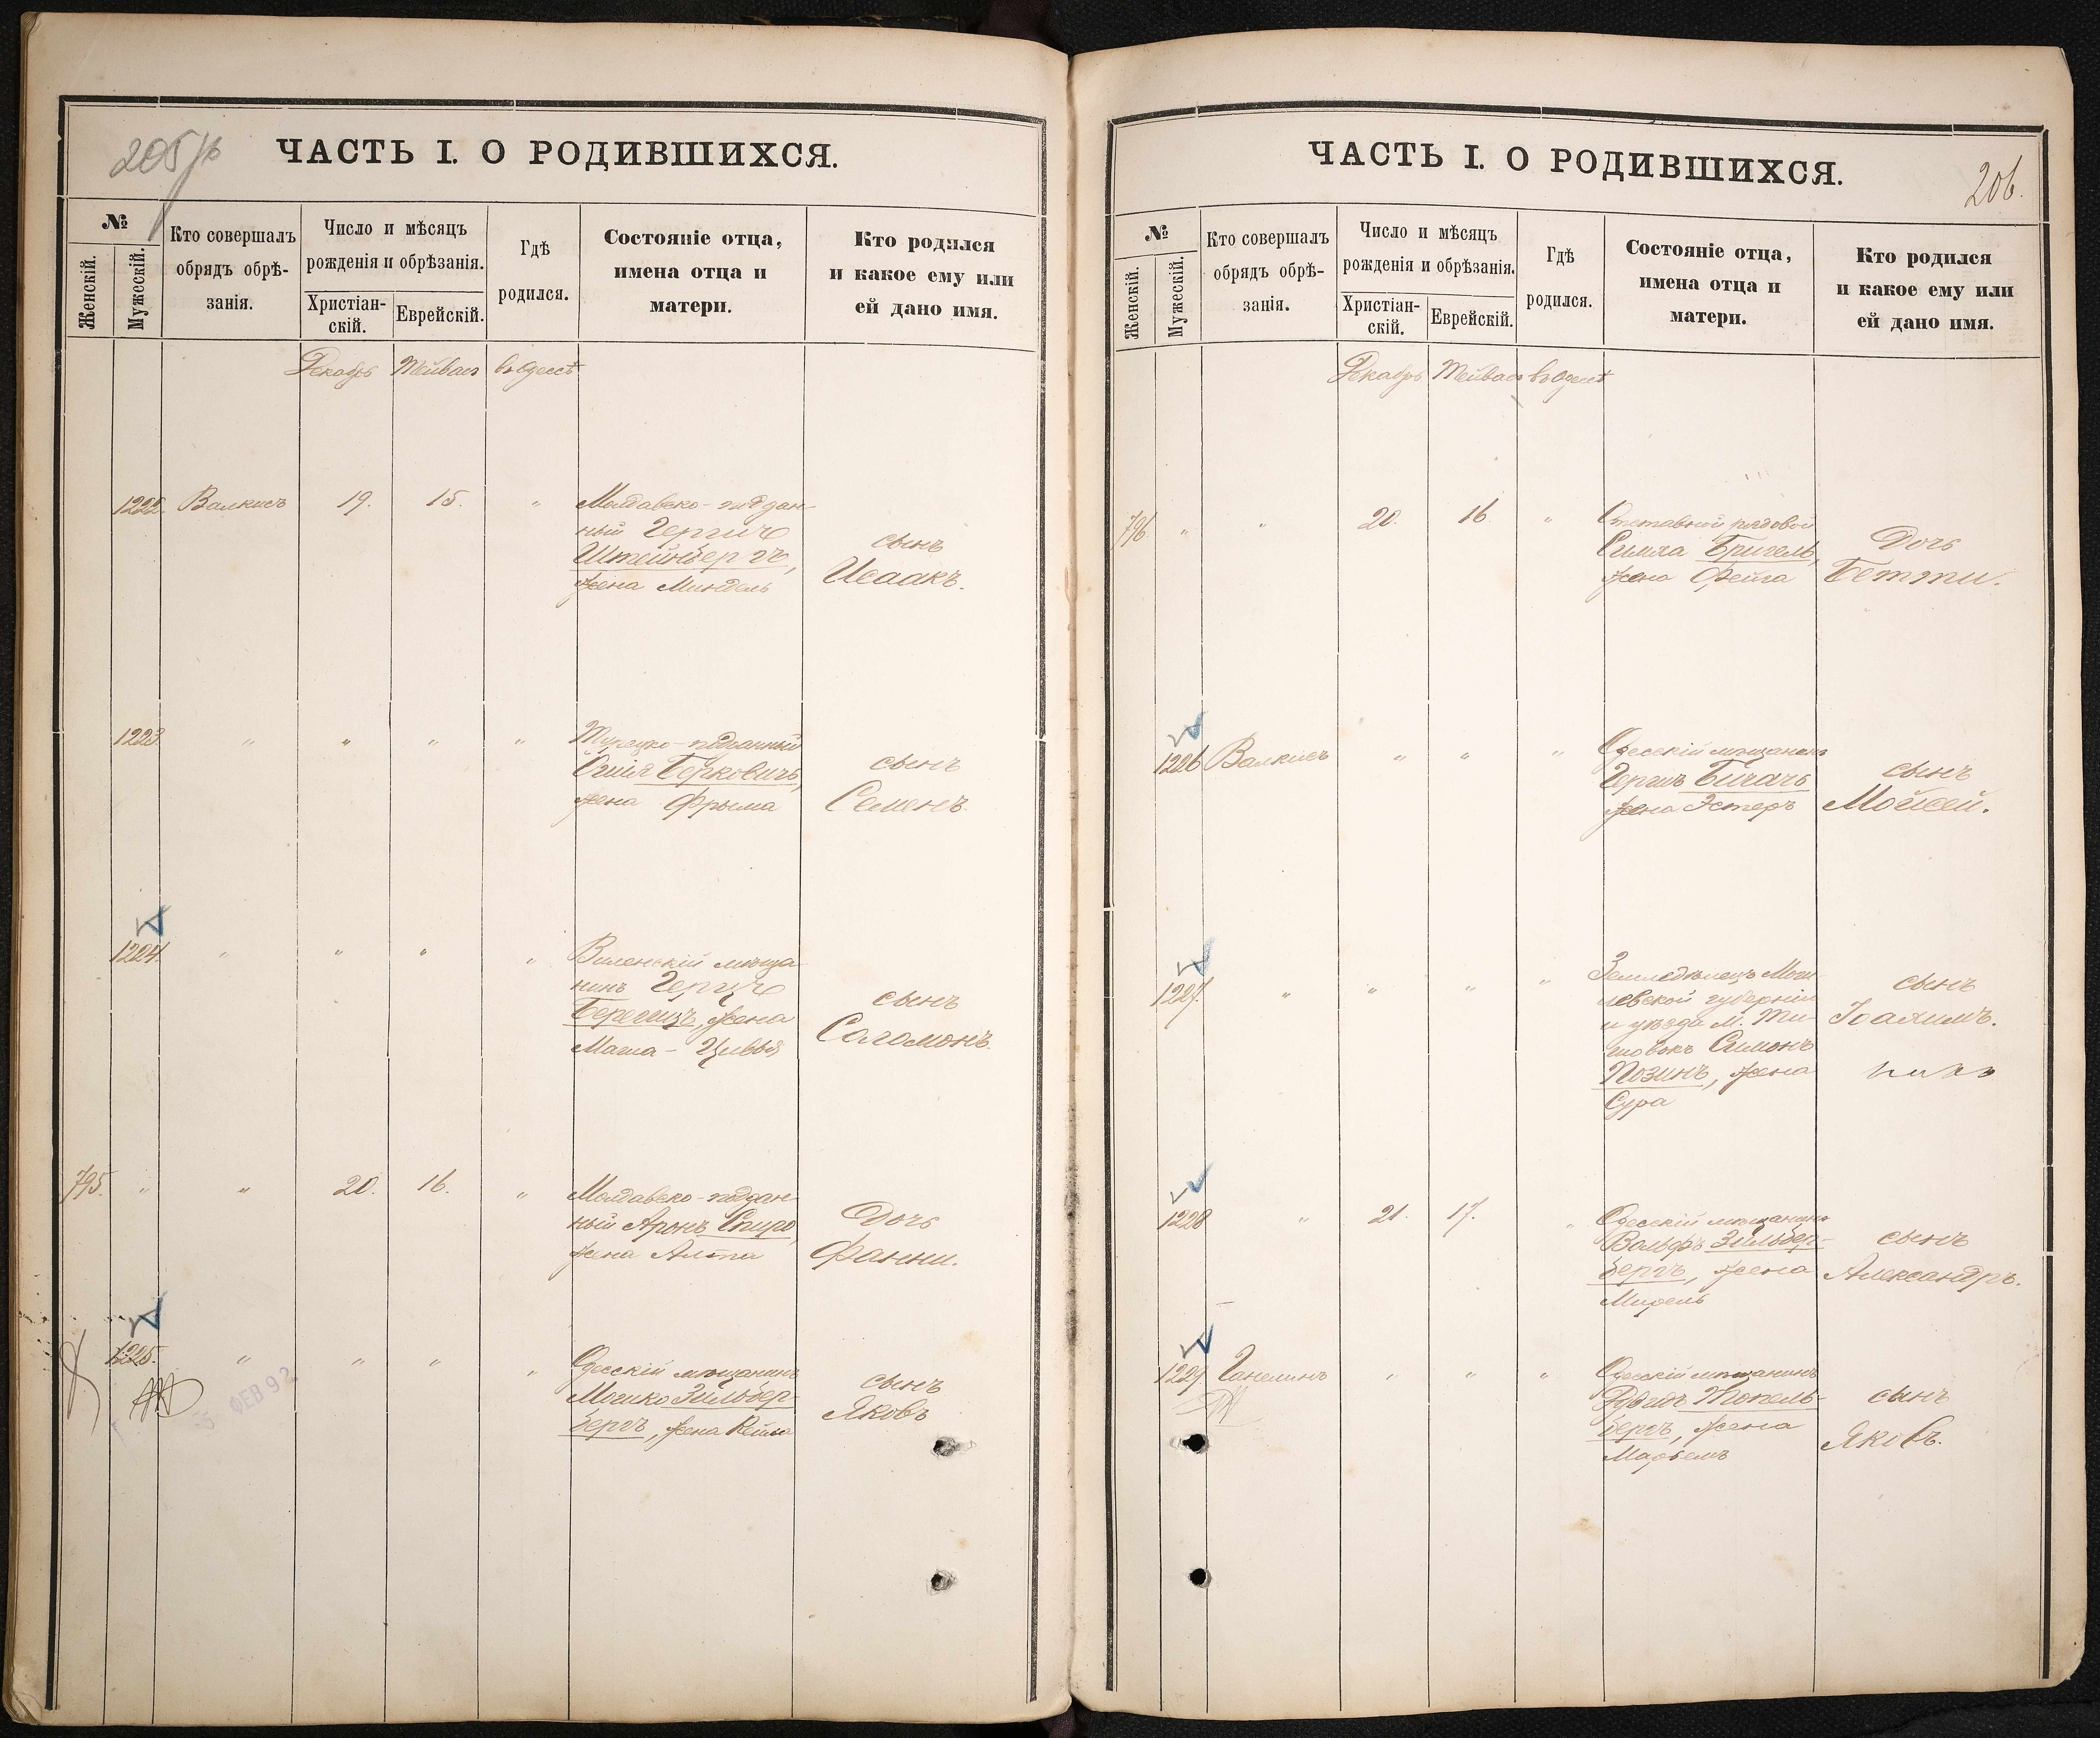 205
ЧАСТЬ I. О РОДИВШИХСЯ.
№
Женскій.
Мужескій.
Кто совершалъ
обрядъ обрѣ-
занія.
Число и мѣсяцъ
рожденія и обрѣзанія.
Христіан-
скій.
Еврейскій.
Гдѣ
родился.
Состояніе отца,
имена отца и
матери.
Кто родился
и какое ему или
ей дано имя.
Декабрь Тейвасъ въ Одессѣ
1222. Валкисъ 19. 15. "
Молдавско-поддан-
ный Гершъ
Штейнбергъ,
жена Миндель
сынъ
Исаакъ.
1223. " " " "
Турецко-подданный
Беркович,
жена Фрыма
сынъ
Семенъ.
1224. " " " "
Виленскій мѣща-
нинъ Герцъ
жена
Маша-Цивья
сынъ
Соломонъ.
795. " " 20. 16. "
Молдавско-поддан-
ный Аронъ Спиро,
жена Алта
Дочь
Фанни.
1225. " " " "
Одесскій мѣщанинъ
Мошко Зильбер-
бергъ, жена Кейла
сынъ
Яковъ
5 ФЕВ 92
206.
ЧАСТЬ I. О РОДИВШИХСЯ.
№
Женскій.
Мужескій.
Кто совершалъ
обрядъ обрѣ-
занія.
Число и мѣсяцъ
рожденія и обрѣзанія.
Христіан-
скій.
Еврейскій.
Гдѣ
родился.
Состояніе отца,
имена отца и
матери.
Кто родился
и какое ему или
ей дано имя.
Декабрь Тейвасъ въ Одессѣ
796. " " 20. 16. "
Отставной рядовой
Симха Бригель,
жена Фейга
Дочь
Бетти.
1226 Валкисъ " " "
Одесскій мѣщанинъ
Гершъ Бигачъ
жена Эстеръ
сынъ
Мойсей.
1227. " " " "
Земледѣлецъ Моги-
левской губерніи
и уѣзда м.
Симонъ
Позинъ, жена
Сура
сынъ
Іоахимъ.
1228 " 21. 17. "
Одесскій мѣщанинъ
Вольфъ Зильбер-
бергъ, жена
Мирель
сынъ
Александръ.
1229. Ганелинъ " " "
Одесскій мѣщанинъ
Топель-
бергъ, жена
Марьемъ
сынъ
Яковъ.